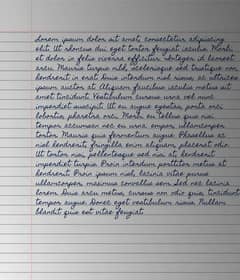 dorem ipsum dolor sit amet, consectetur adipiscing
elit. Ut rhoncus dui eget tortor feugiat iaculis. Morbi
et dolor in felis viverra efficitur. Integer id laoreet
arcu. Mauris turpis nibh, scelerisque sed tristique non,
hendrerit in erat. Duis interdum nisl risus, ac ultrices
ipsum auctor at. Aliquam faucibus iaculis metus sit
amet tincidunt. Vestibulum cursus urna vel nunc
imperdiet suscipit. Ut eu augue egestas, porta orci
lobortis, pharetra orci. Morbi eu tellus quis nisi
tempor accumsan nec eu urna. ullamcorper
tortor. Mauris quis fermentum augue. Phasellus ac
nisl hendrerit, fringilla enim aliquam, placerat odio.
Ut tortor nisi, pellentesque sed nisi at, hendrerit
imperdiet turpis. Proin interdum porttitor metus at
hendrerit. Proin ipsum nisl, lacinia vitae purus
ullamcorper, maximus convallis sem. Sed nec lacinia
lorem. Duis arcu metus, cursus non odio quis, tincidunt
tempor augue. Donec eget vestibulum risus. Nullam
blandit quis est vitae feugiat.